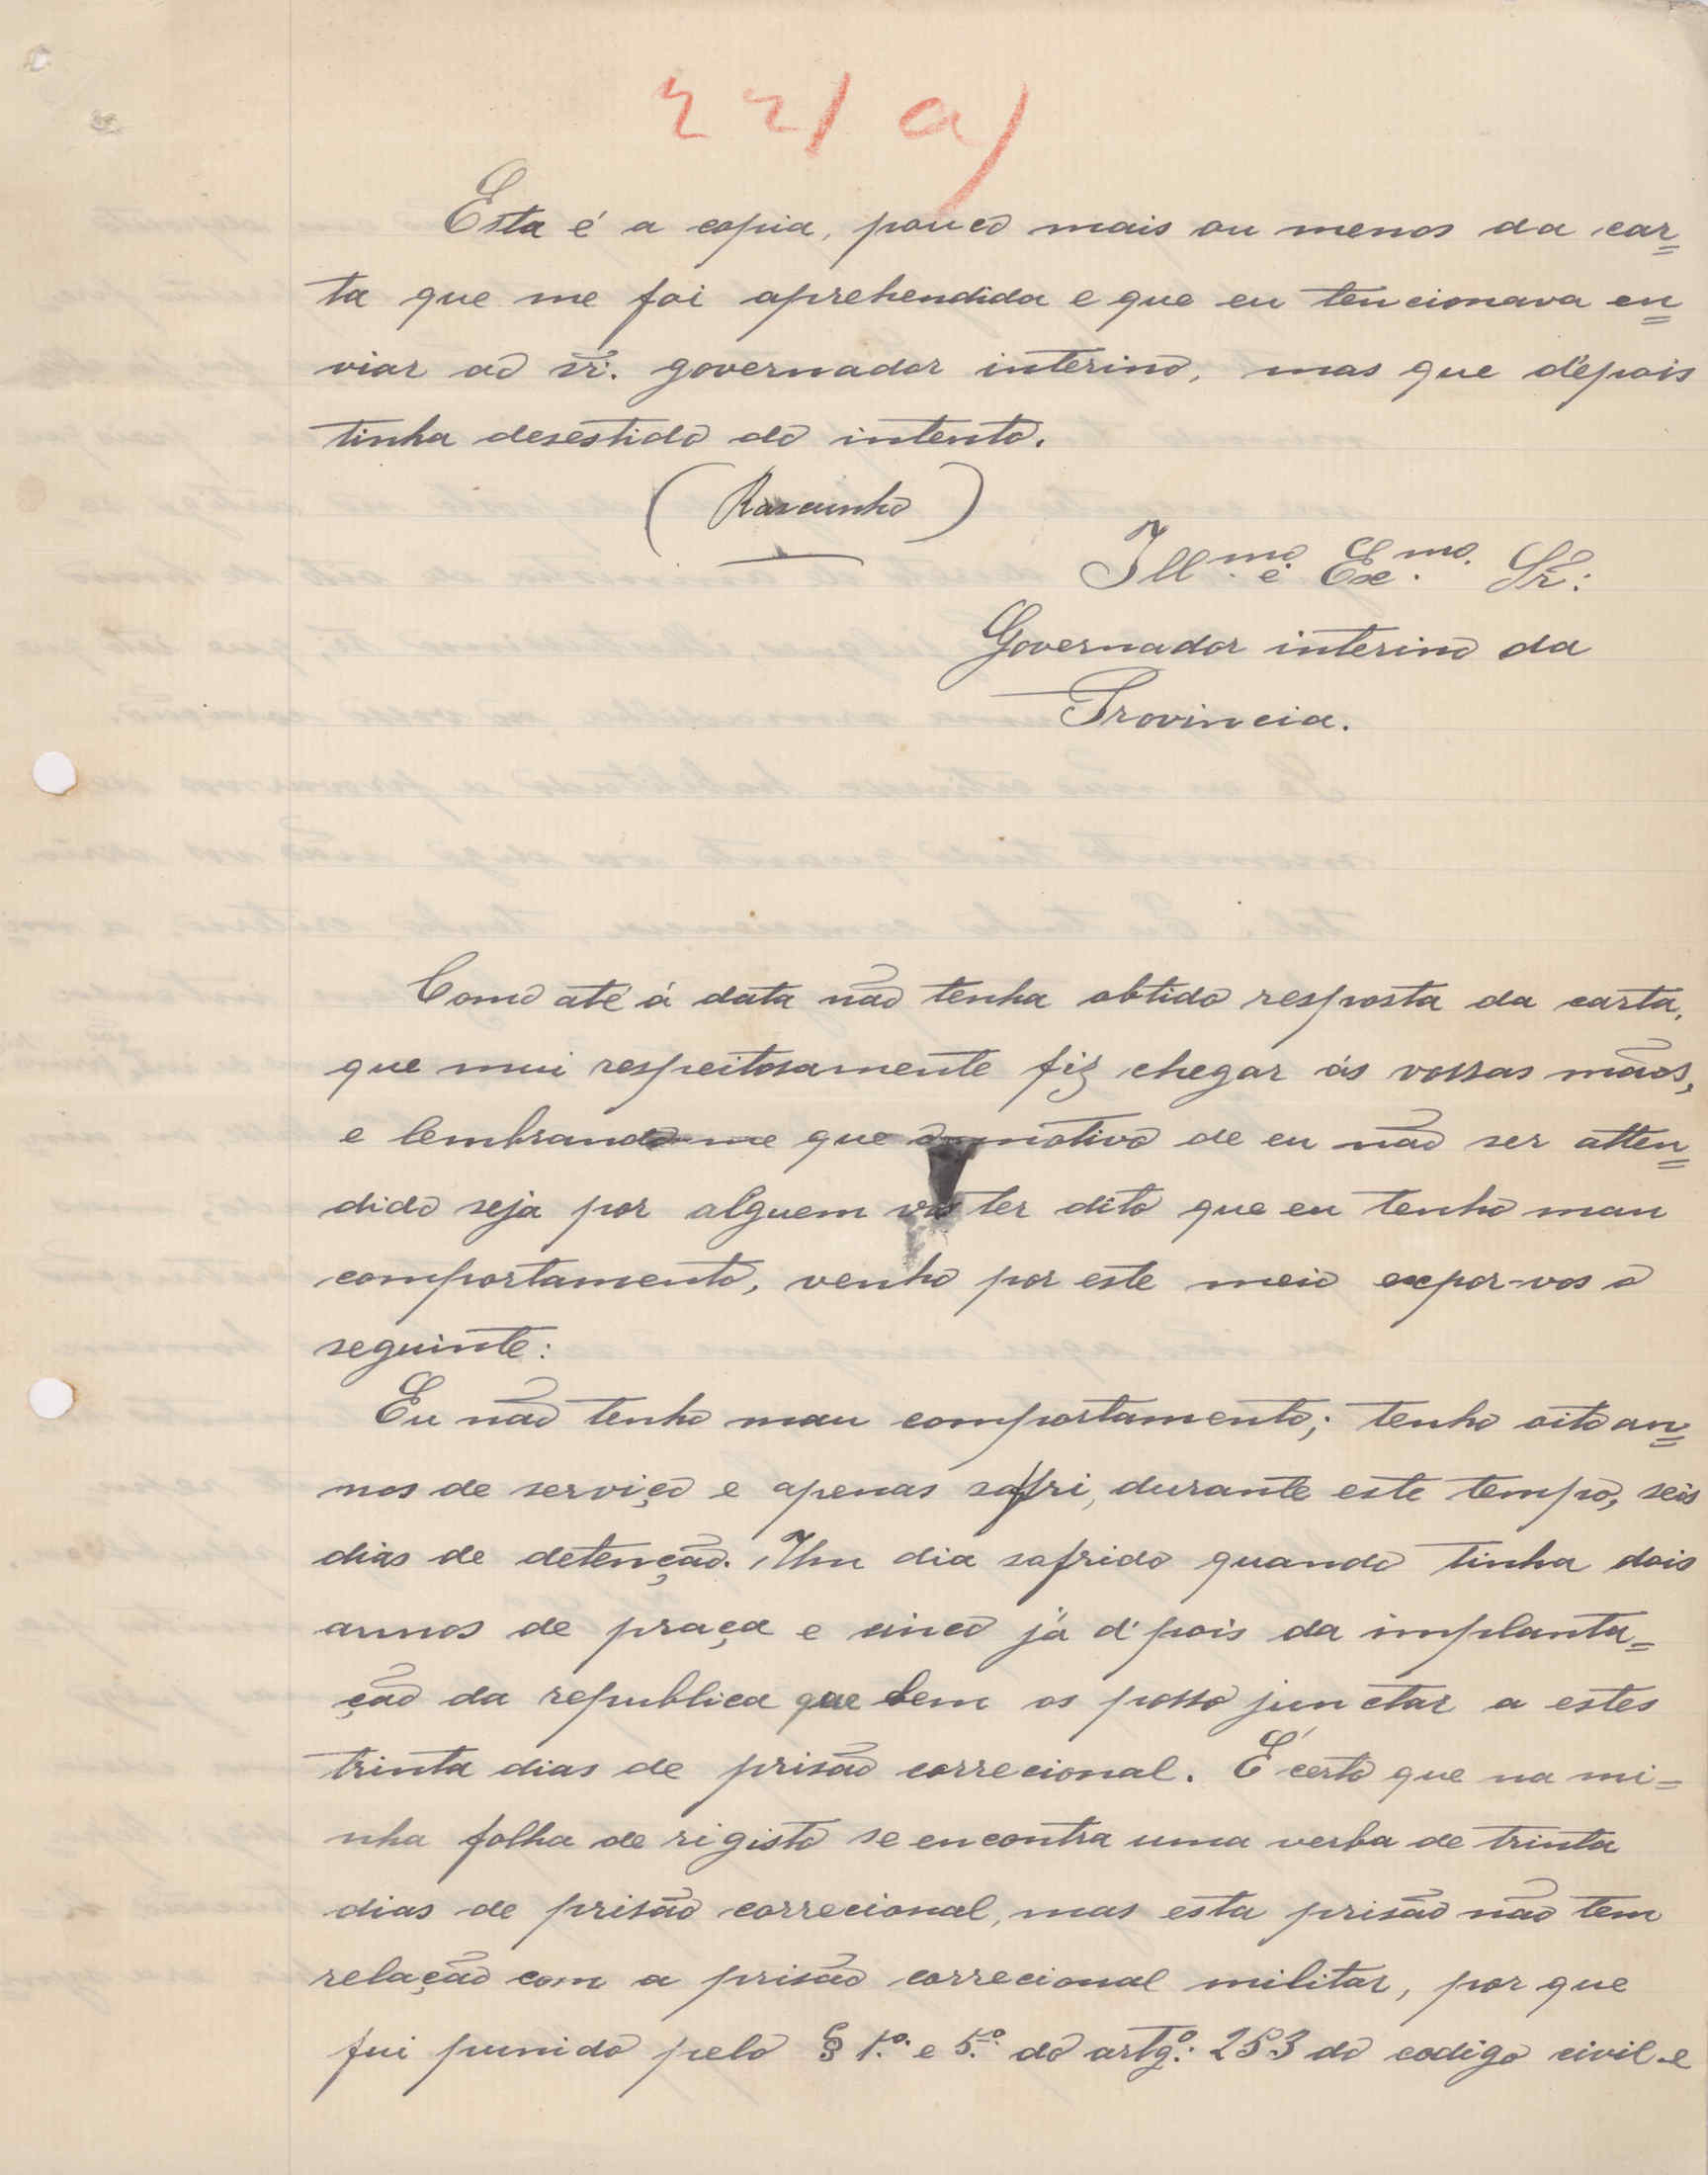 22/ a)
Esta é a copia, pouco mais ou menos da car=
ta que me foi aprehendida e que eu tencionava en=
viar ao sr. governador interino, mas que depois
tinha desestido do intento.
(Rascunho)
Illmo. e Exmo. Sr:
Governador interino da
Provincia.
Como até á data não tenha obtido resposta da carta,
que mui respeitosamente fiz chegar ás vossas mãos,
e lembrando-me que o motivo de eu não ser atten=
dido seja por alguem vos ter dito que eu tenho mau
comportamento, venho por este meio expor-vos o
seguinte:
Eu não tenho mau comportamento; tenho oito an=
nos de serviço e apenas soffri, durante este tempo, seis
dias de detenção. Um dia sofrido quando tinha dois
annos de praça e cinco já d'pois da implanta=
ção da republica que bem os posso junctar a estes
trinta dias de prisão correcional. É certo que na mi=
nha folha de rigisto se encontra uma verba de trinta
dias de prisão correcional, mas esta prisão não tem
relação com a prisão correcional militar, por que
fui punido pelo § 1.º e 5.º do artg.º: 253 do codigo civil e